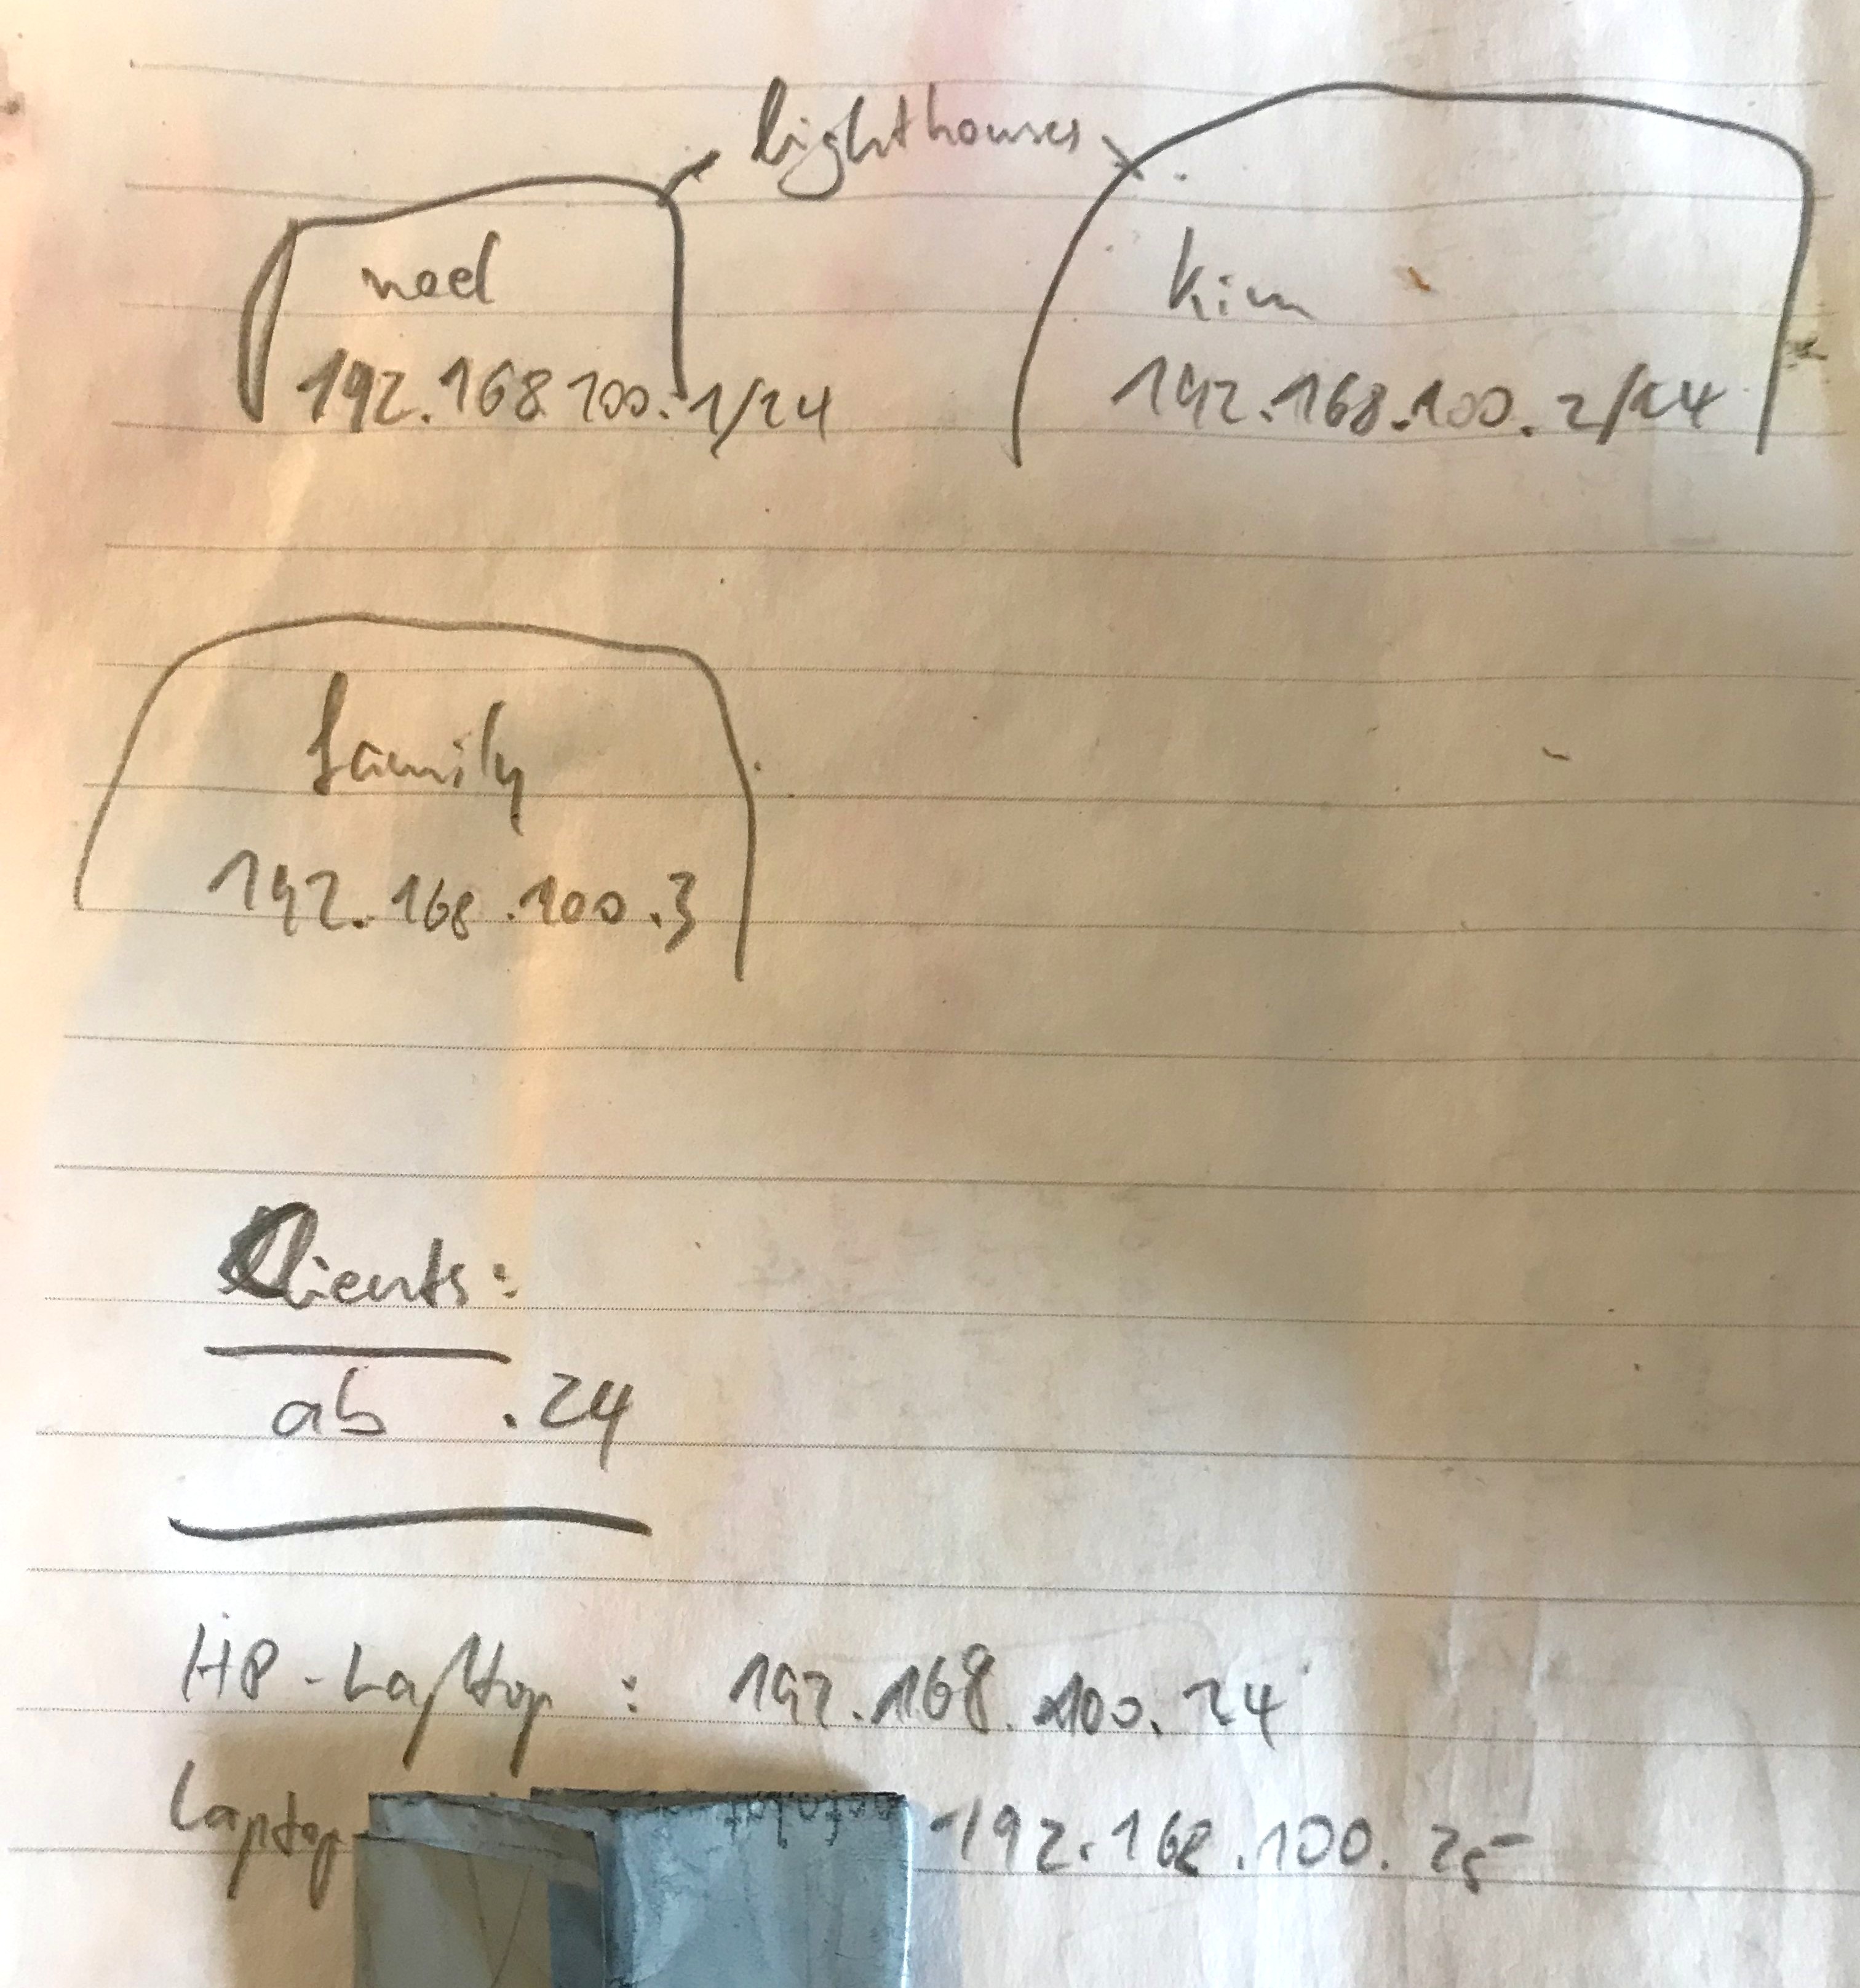 lighthouses
noel
kim
192.168.100.1/24
192.168.100.2/24
family
192.168.100.3
Clients:
ab .24
HP-Laptop : 192.168.100.24
Laptop 192.168.100.25